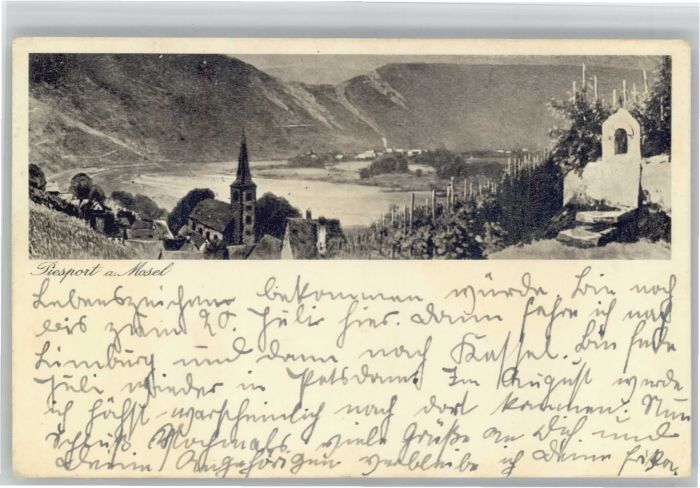 Piesport a. Mosel
Lebenszeichen bekommen würde. Bin noch
bis zum 20. Juli hier. Dann fahre ich nach
Limburg und dann nach Kassel. Bin Ende
Juli wieder in Potsdam. Im August werde
ich höchst warscheinlich nach dort kommen. Nun
Schluß Nochmals viele Grüße an Dich und
Deine Angehörigen verbleibe ich Deine Erika.